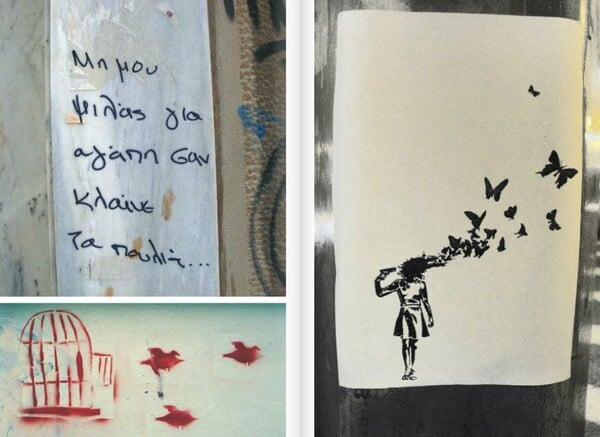 Μη μου
μιλάς για
αγάπη σαν
κλαίνε
τα πουλιά...